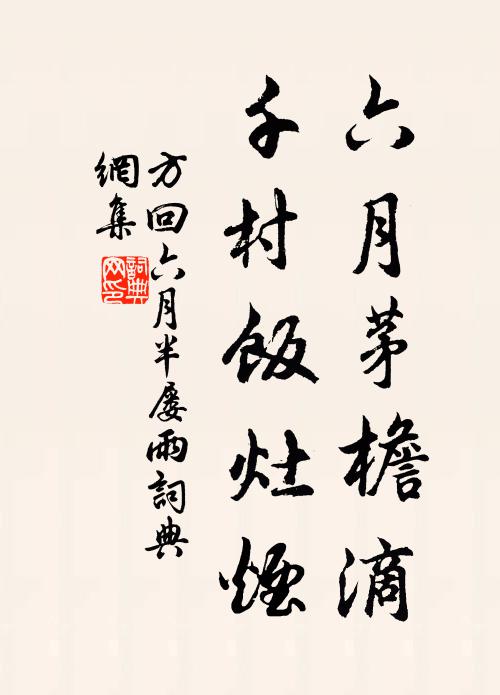 六月茅檐滴
千村飯灶煙
方回六月半屡雨詞典
網集
詞典
网印